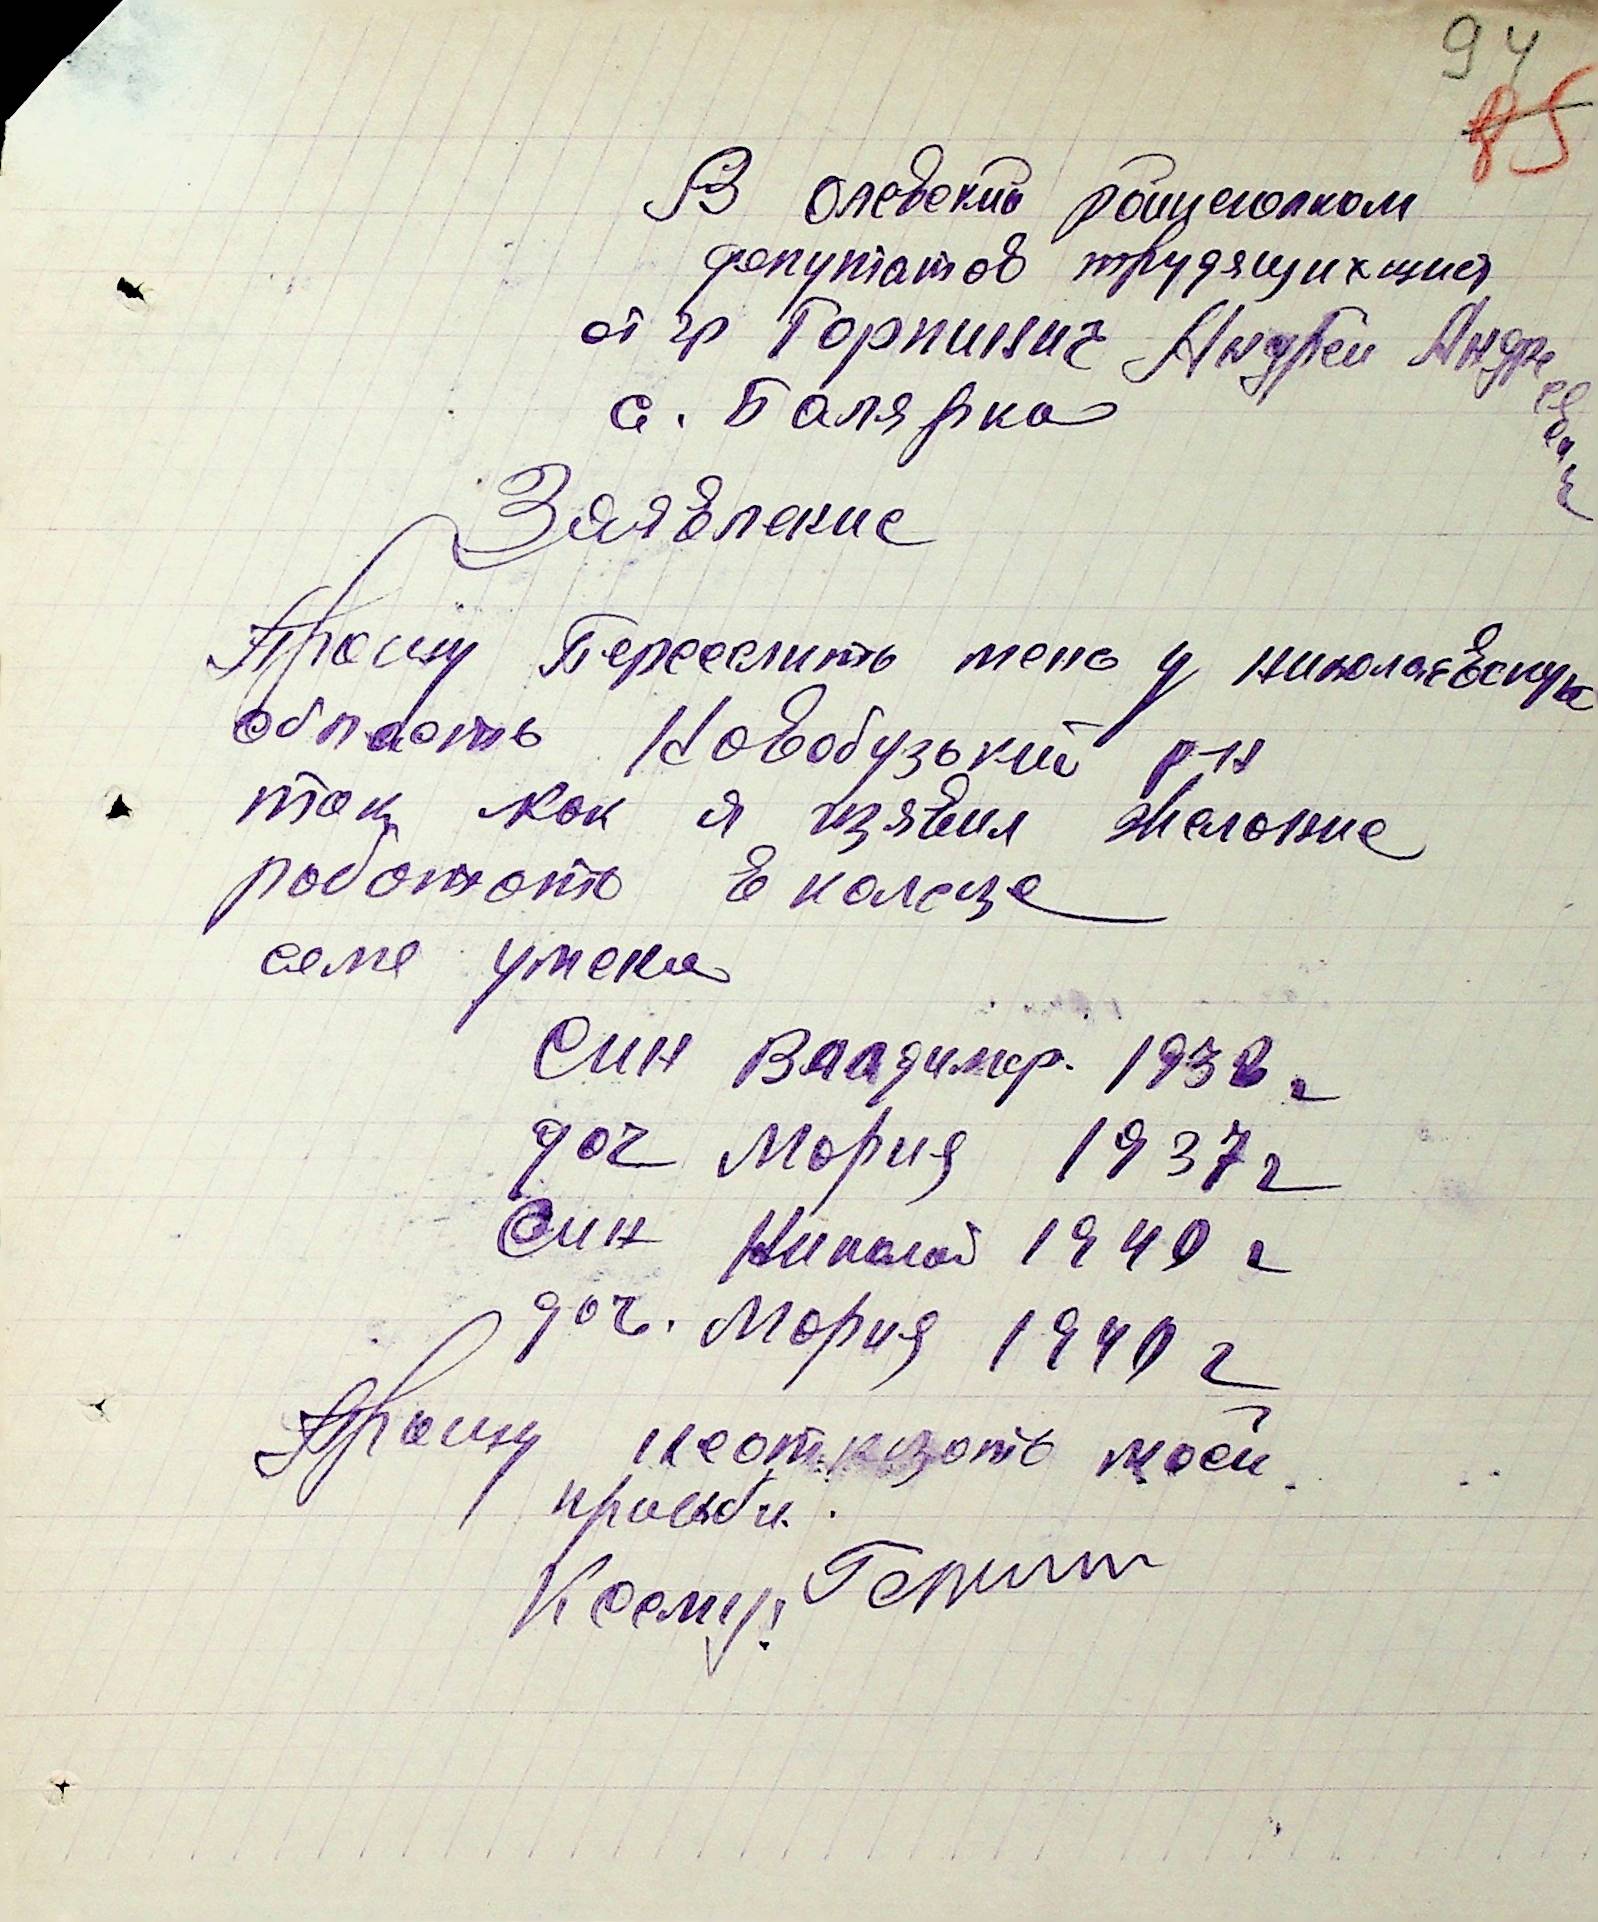 94
85
В олевский райисполком
депутатов трудящихщися
от гр Горпинич Андрей Андреевич
с. Балярка
Заявление
Прошу Переселить мене у николаевскую
область Новобузький р-н
так как я изявил желание
работать в колгозе
семе у мена
Син Владимер. 1938 г
доч Мария 1937 г
Син Николай 1940 г
доч. Мария 1940 г
Прошу неотказать моей
прозьби.
К сему! Горпин